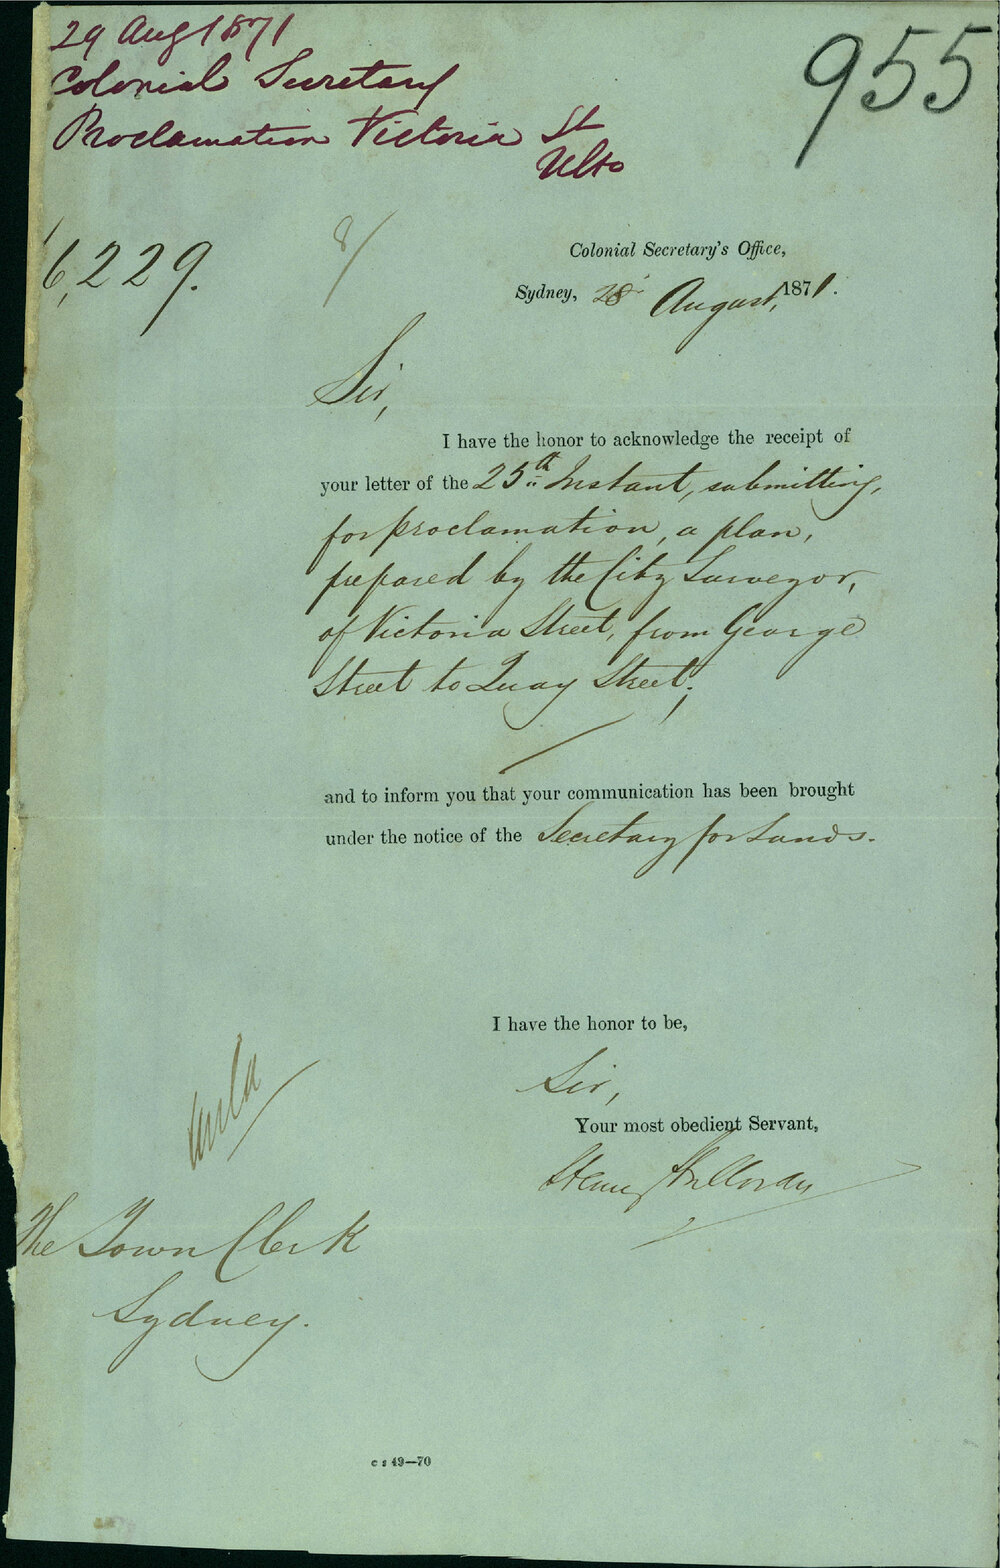 29 Aug 1871
Colonial Secretary
Proclamation Victoria St
Ulto
955
6,229.
Colonial Secretary's Office,
Sydney, 28 August, 1871.
Sir,
I have the honor to acknowledge the receipt of
your letter of the 25th Instant, submitting,
for proclamation, a plan,
prepared by the City Surveyor,
of Victoria Street, from George
Street to Quay Street;
and to inform you that your communication has been brought
under the notice of the Secretary for Lands.
I have the honor to be,
Sir,
Your most obedient Servant,
Henry Halloran
The Town Clerk
Sydney.
c s 49—70